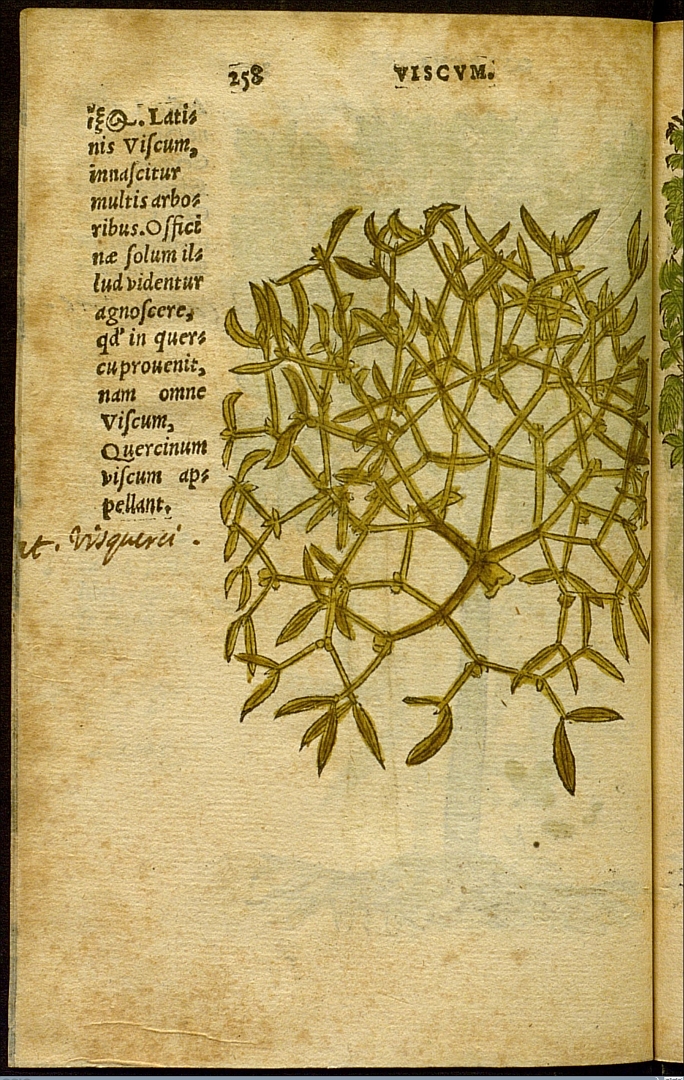 258 VISCVM.
ἰξὸς. Lati⸗
nis Viſcum,
innaſcitur
multis arbo⸗
ribus. Offici
næ ſolum il⸗
lud videntur
agnoſcere,
qđ in quer⸗
cu prouenit,
nam omne
Viſcum,
Quercinum
viſcum ap⸗
pellant.
it. Visquerci.